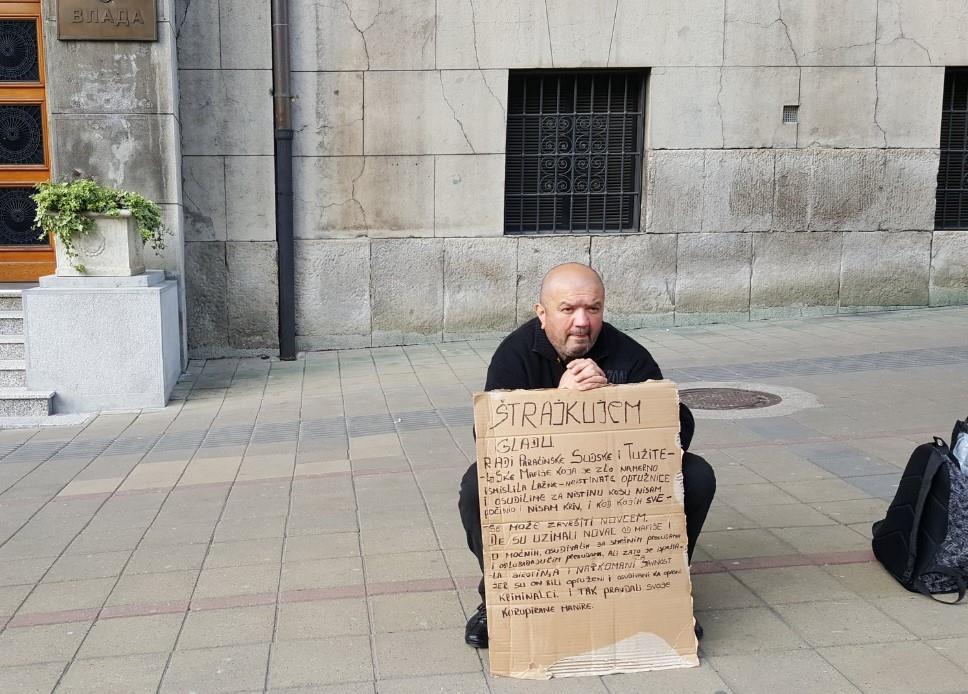 ВЛАДА
ŠTRAJKUJEM
GLAĐU
RADI PARAĆINSKE SUDSKE I TUŽITE-
LJSKE MAFIJE KOJA JE ZLO NAMERNO
ISMISLILA LAŽNE-NEISTINATE OPTUŽNICE
I OSUDILI ME ZA NISTINU KOJU NISAM
POČINIO I NISAM KRIV, I KOD KOJIH SVE-
SE MOŽE ZAVRŠITI NOVCEM.
DE SU UZIMALI NOVAC OD MAFIJE I
MOĆNIH, OSUĐIVALI ZA SMEŠNIM PRESUDAMA
I OSLOBAĐAJUĆIM PRESUDAMA, ALI ZATO JE
LA SIROTINJA I NARKOMANI JAVNOST
JER SU ONI BILI OPTUŽENI I OSUĐIVANI KA OPASNI
KRIMINALCI. I TAK PRAVDALI SVOJE
KORUPIRANE MANIRE.